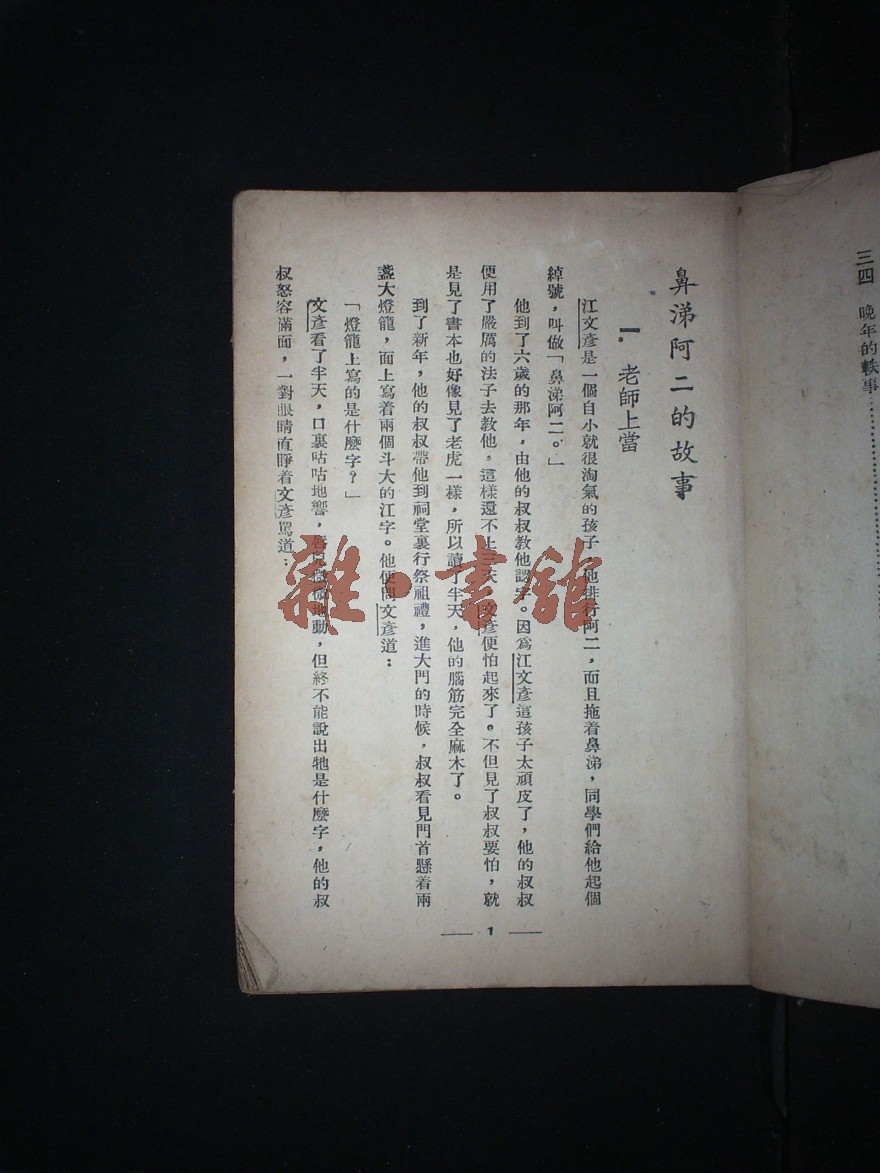 三四 晚年的軼事…………………
鼻涕阿二的故事
一 老師上當
江文彥是一個自小就很淘氣的孩子，他排行阿二，而且拖着鼻涕，同學們給他起個
綽號，叫做「鼻涕阿二。」
他到了六歲的那年，由他的叔叔教他認字。因爲江文彥這孩子太頑皮了，他的叔叔
便用了嚴厲的法子去教他，這樣還不上三天，文彥便怕起來了。不但見了叔叔要怕，就
是見了書本也好像見了老虎一樣，所以讀了半天，他的腦筋完全麻木了。
到了新年，他的叔叔帶他到祠堂裏行祭祖禮，進大門的時候，叔叔看見門首懸着兩
盞大燈籠，面上寫着兩個斗大的江字。他便問文彥道：
「燈籠上寫的是什麼字？」
文彥看了半天，口裏咕咕地響，地動，但終不能說出牠是什麼字，他的叔
叔怒容滿面，一對眼睛直睜着文彥罵道：
1
雜·書館